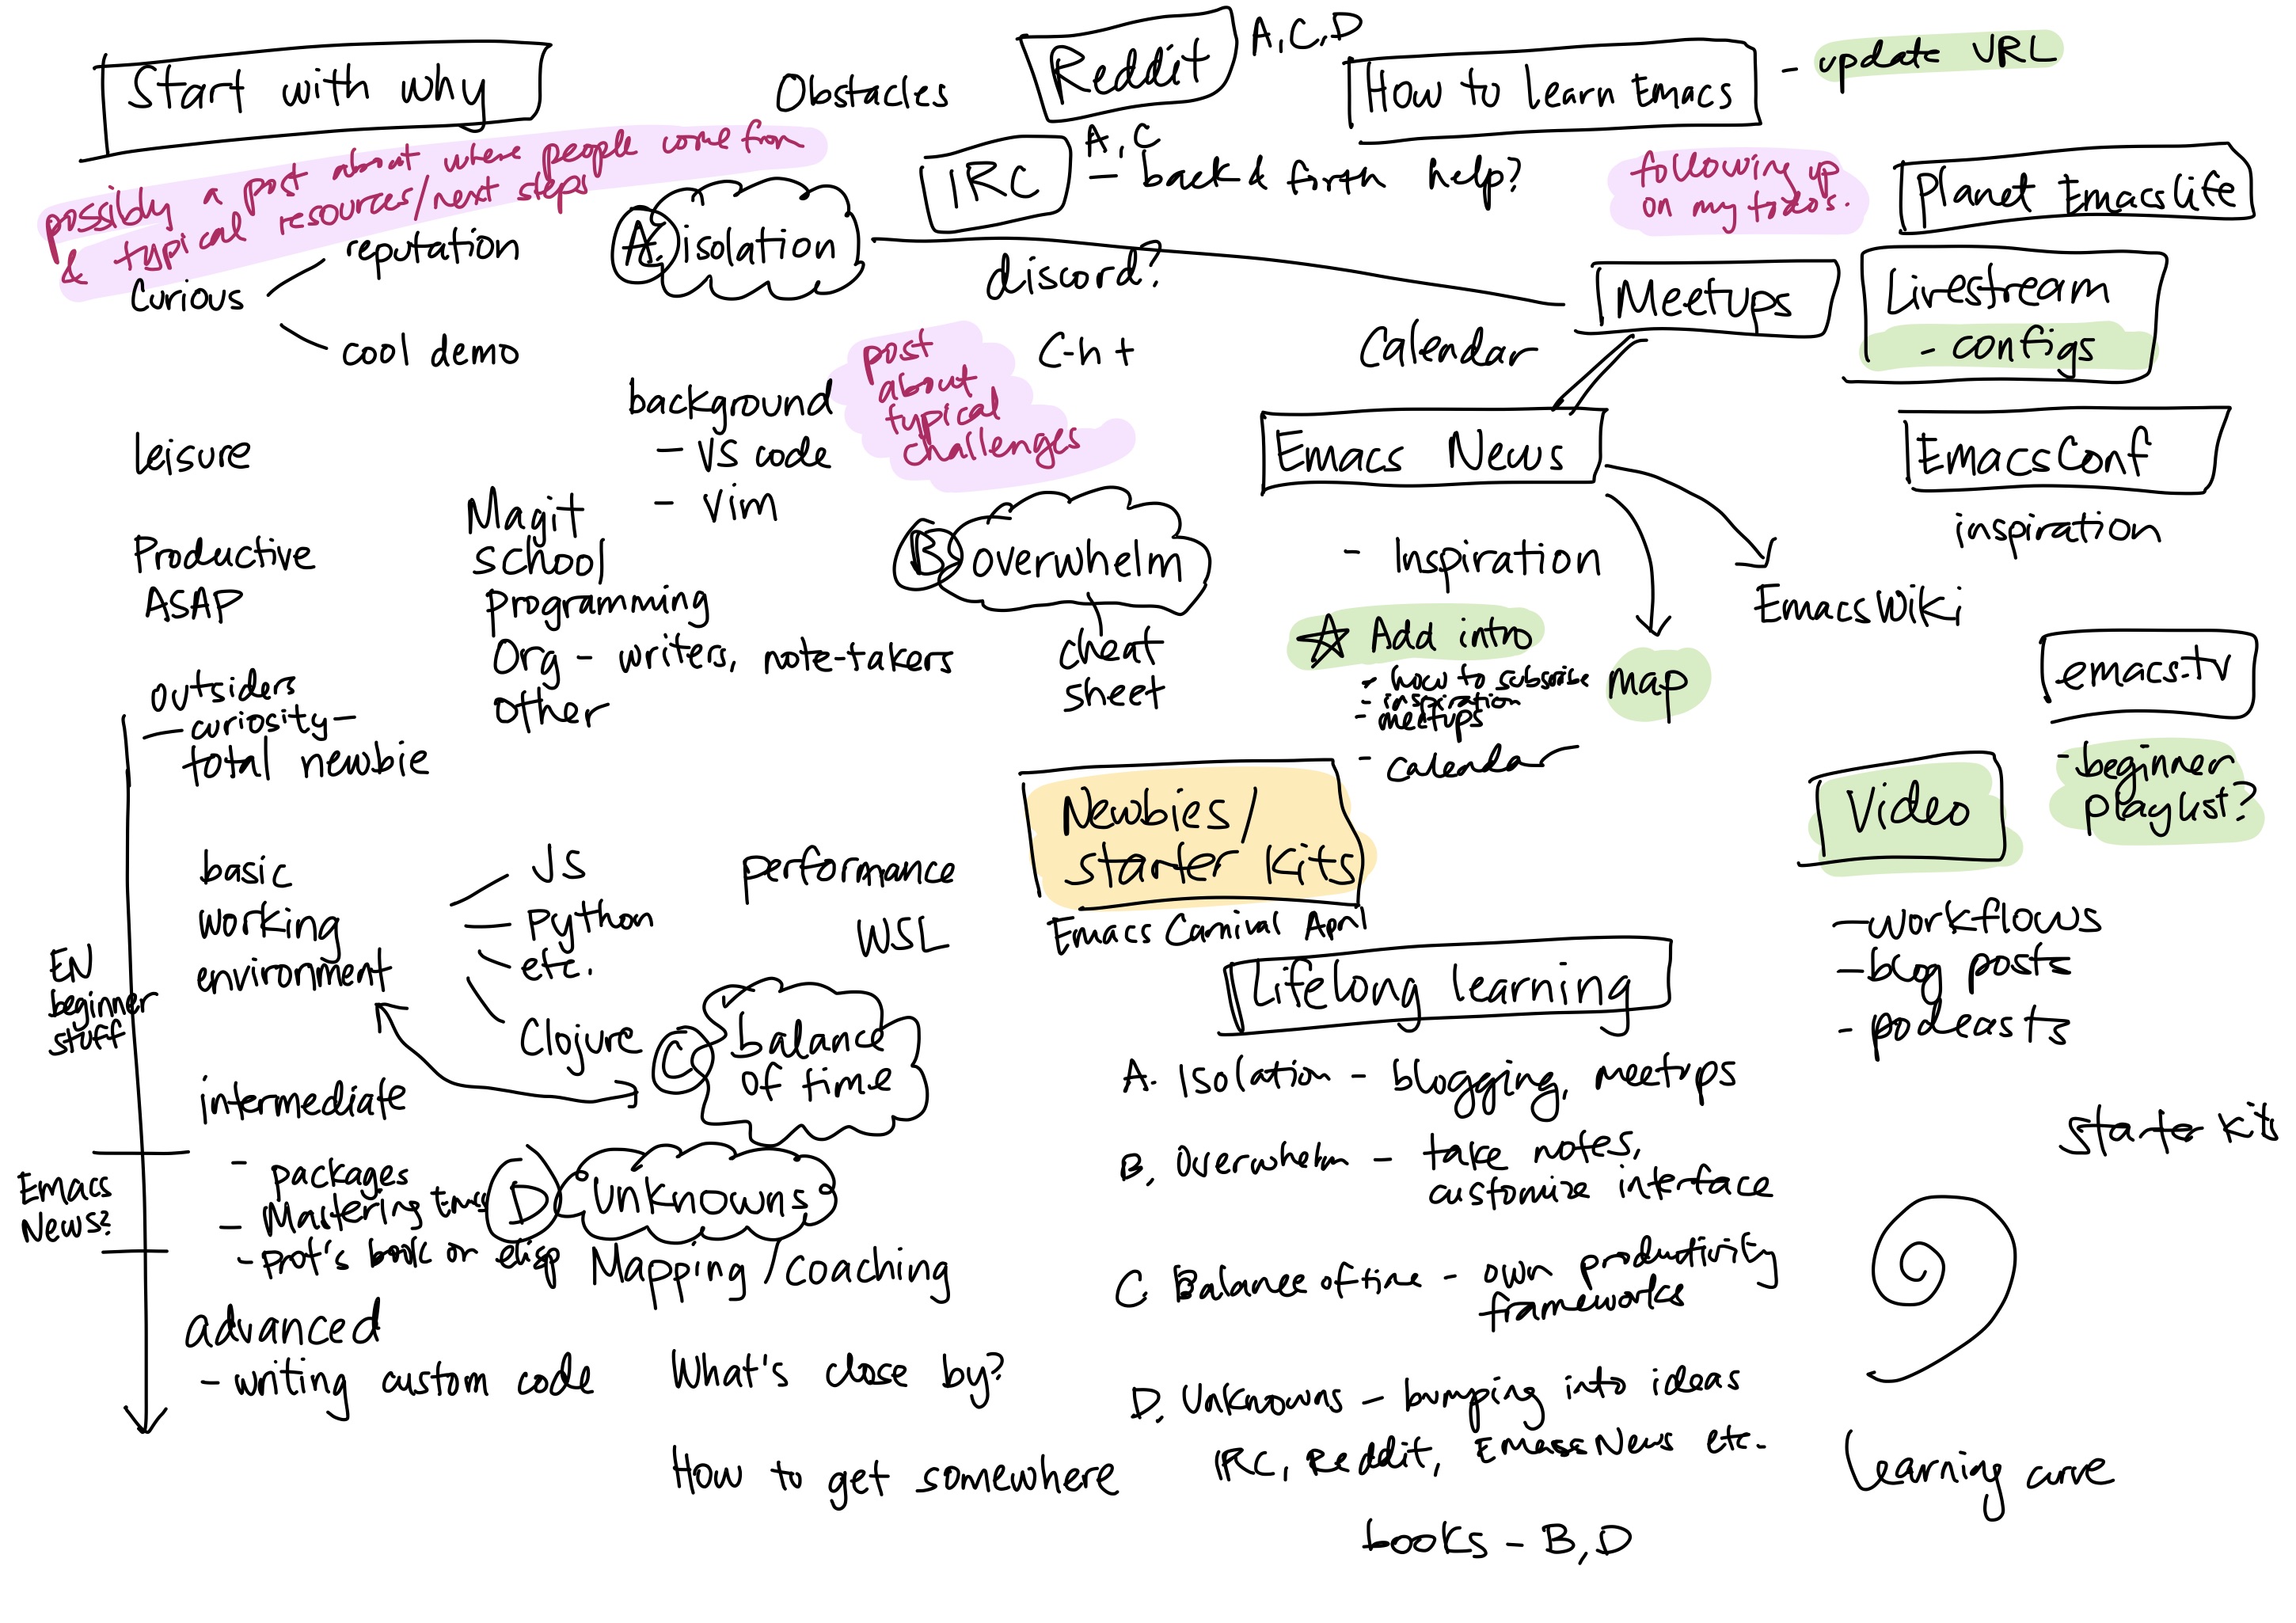 Start with why
possibly a post about where people come from
& typical resources/next steps
Curious
reputation
cool demo
leisure
Productive
ASAP
background
- VS code
- Vim
Magit
School
Programming
Org - writers, note-takers
other
outsiders
- curiosity -
total newbie
basic
working
environment
JS
Python
etc.
Clojure
EN
beginner
stuff
intermediate
- packages
- Mastering Emacs
- Prot's book on elisp
Emacs
News?
advanced
- writing custom code
Obstacles
A. isolation
post
about
typical
challenges
B overwhelm
cheat
sheet
performance
WSL
C balance
of time
D unknowns
Mapping/coaching
What's close by?
How to get somewhere
Reddit
A, C, D
IRC
A, C
- back & forth help?
discord?
C-h t
How to learn Emacs
- update URL
following up
on my todos.
Planet Emacslife
Meetups
Livestream
- configs
Calendar
Emacs News
- Inspiration
☆ Add intro
- how to subscribe
- inspiration
- meetups
- calendar
map
EmacsWiki
EmacsConf
inspiration
emacs.tv
- beginner
playlist?
Video
- workflows
- blog posts
- podcasts
Newbies/
starter kits
Emacs Carnival April
Lifelong learning
A. Isolation - blogging, meetups
B. Overwhelm - take notes,
customize interface
C. Balance of time - own productivity
frameworks
D. Unknowns - bumping into ideas
IRC, Reddit, Emacs News etc.
books - B, D
starter kits
Learning curve